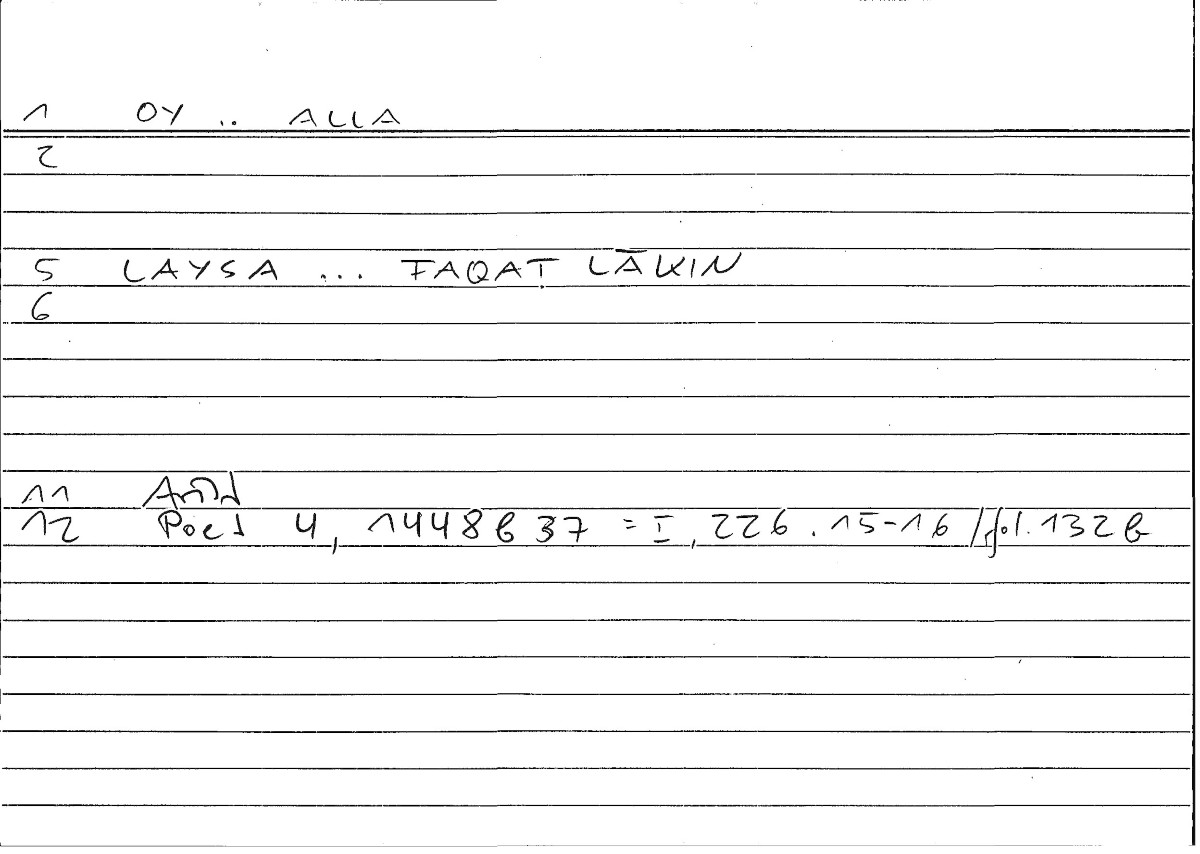 1 OY .. ALLA
2
5 LAYSA ... FAQAṬ LĀKIN
6
11
12 Poet 4, 1448b37 = I, 226.15-16/fol.132b